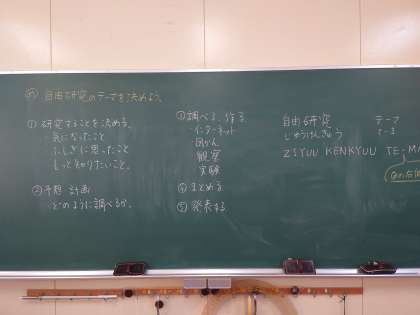 め 自由研究のテーマを決めよう。
① 研究することを決める。
・気になったこと
・ふしぎに思ったこと
・もっと知りたいこと。
② 予想 計画
・どのように調べるか。
③ 調べる、作る
・インターネット
・図かん
・観察
・実験
④ まとめる
⑤ 発表する
自由研究 テーマ
ZIYUU KENKYUU TE-MA